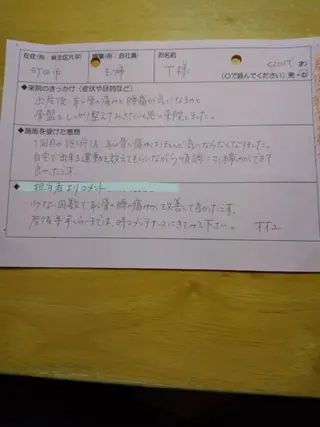 在住(例:麻生区片平)
職業(例:会社員)
お名前
町田市
主婦
T様
(○で読んでください) 男・女
◆来院のきっかけ(症状や目的など)
出産後、恥骨の痛みと腰痛が気になるのと
骨盤をしっかり整えておきたいと思い来院しました。
◆施術を受けた感想
1回目の施術後、恥骨の痛みがほとんど気にならなくなりました。
自宅で出来る運動を教えてもらいながら
良かったです。
◆担当者よりコメント
少ない回数で恥骨や腰の痛みが改善して良かったです。
産後半年くらいまでは、時々メンテナンスにきてみて下さい。